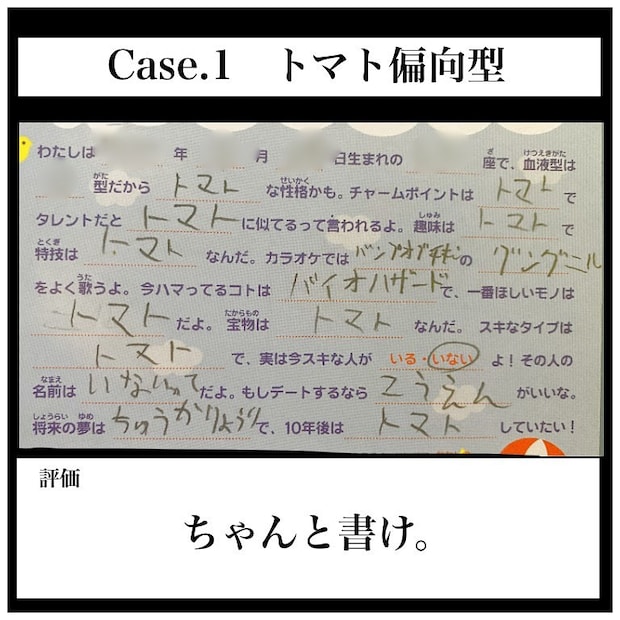 Case.1 トマト偏向型
わたしは 年 月 日生まれの 座で、血液型は
型だから トマト な性格かも。チャームポイントは トマト で
タレントだと トマト に似てるって言われるよ。趣味は トマト で
特技は トマト なんだ。カラオケでは バンプオブチキン の グングニル
をよく歌うよ。今ハマってるコトは バイオハザード で、一番ほしいモノは
トマト だよ。宝物は トマト なんだ。スキなタイプは
トマト で、実は今スキな人が いる・いない よ！その人の
名前は いないって だよ。もしデートするなら こうえん がいいな。
将来の夢は ちゅうかりょうり で、10年後は トマト していたい！
評価
ちゃんと書け。